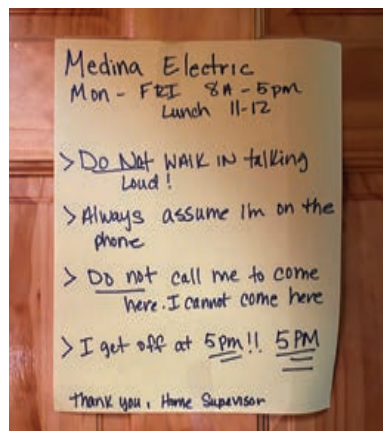 Medina Electric
Mon - FRI 8A - 5pm
Lunch 11-12
> Do Not WALK IN talking
Loud!
> Always assume Im on the
phone
> Do not call me to come
here. I cannot come here
> I get off at 5pm!! 5PM
Thank you, Home Supervisor